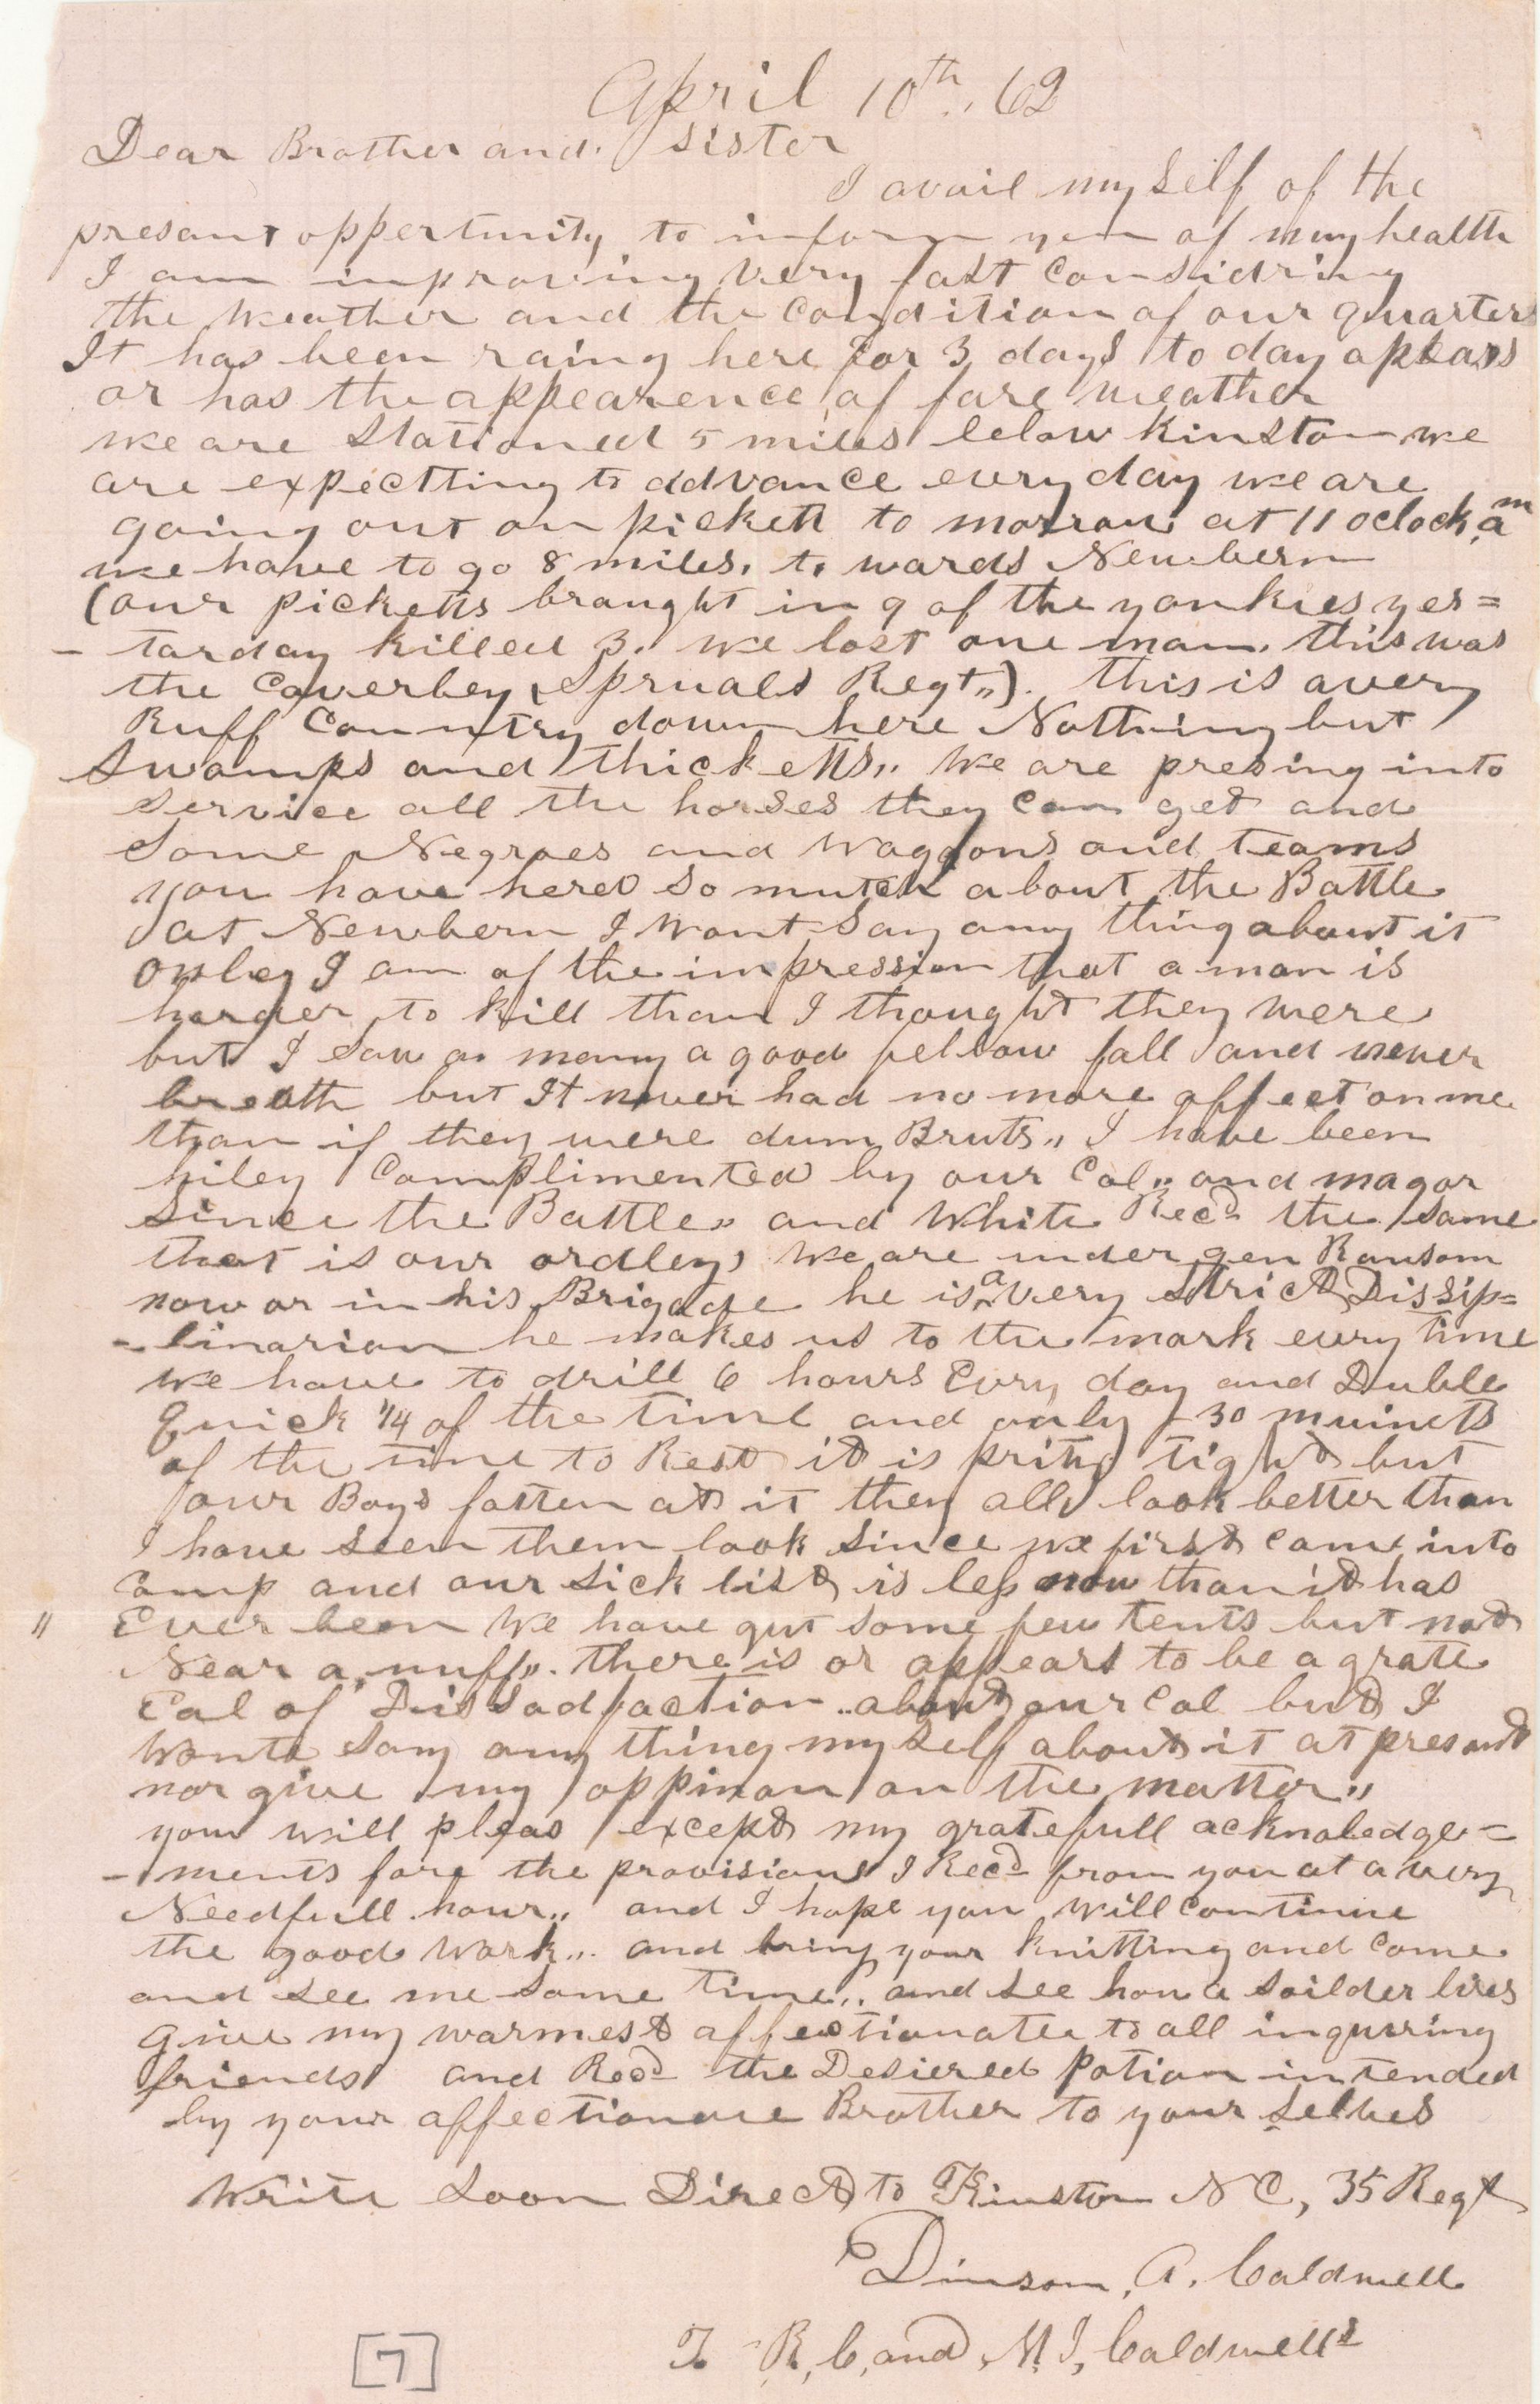 April 10th, 62
Dear Brother and Sister
I avail my self of the
presant oppertunity to inform you of mmy health
I am improving very fast considring
the weather and the condition of our quarters
It has been raing here for 3 days to day apears
or has the appearence of fare weather
we are stationed 5 miles below Kinston we
are expectting to advance every day we are
going out on pickett to morrow at 11 oclock, am
we have to go 8 miles, to wards Newbern
(our picketts braught in 9 of the yonkies yes=
- tarday killed 3. we lost one man. this was
the Caverley (Spruals Regt,,). this is a very
Ruff Country down here Nothing but
Swamps and thicketts,, we are presing into
service all the horses they can get and
some Negroes and waggons and teams
you have herd so mutch about the Battle
at Newbern I wont say any thing about it
onley I am of the impression that a man is
harder to kill than I thought they were
but I saw a many a good fellow fall and never
breath but It never had no more affect on me
than if they were dum Bruts,, I have been
hiley Complimented by our Col,, and magor
Since the Battle,, and White Recd the same
that is our ordley, we are under gen Ransom
now or in his Brigade he is a very strict Dissip=
- linarian he makes us to the mark every time
we have to drill 6 hours Evry day and Duble
Quick 1/4 of the time and only 30 muinets
of the time to Rest it is prity tight but
our Boys fatten at it they all look better than
I have seen them look since we first came into
Camp and our sick list is less now than it has
" Ever been we have got some few tents but not
Near a nuff,,. there is or appears to be a grate
Eal of Dissadfaction ,, about our Col but I
wont say any thing my self about it at presant
nor give my oppinon on the matter,,
you will pleas except my gratefull acknoledge=
- ments fore the provisions I Recd from you at a very
Needfull hour,, and I hope you will continue
the good work,,. and bring your knitting and come
and see me some time,, and see how a soilder lives
give my warmest affectionatee to all inquiring
friends and Recd the Desiered potion intended
by your affectionate Brother to your selves
Write soon Direct to Kinston N C, 35 Regt
Dinsom, A. Caldwell
To R, C, and M. J, Caldwells
[7]